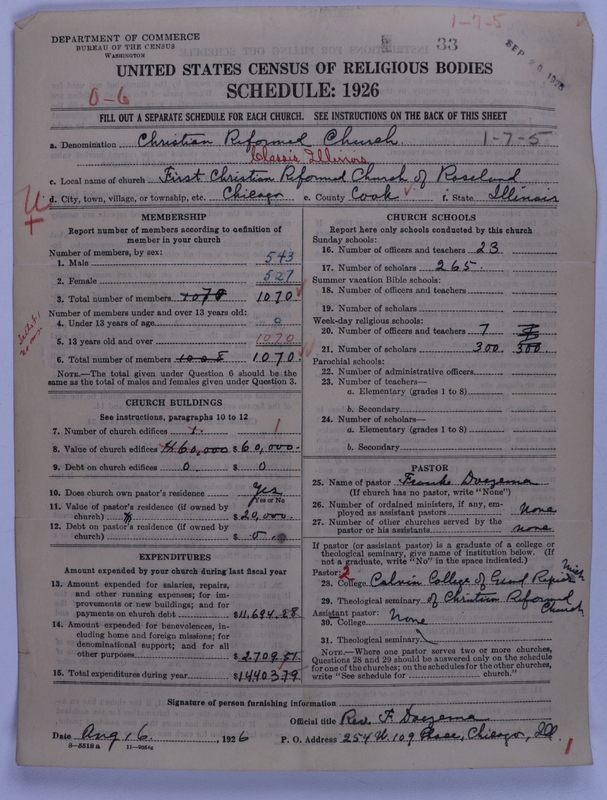 1-7-5
33
DEPARTMENT OF COMMERCE
BUREAU OF THE CENSUS
WASHINGTON
UNITED STATES CENSUS OF RELIGIOUS BODIES
SCHEDULE: 1926
0-6
FILL OUT A SEPARATE SCHEDULE FOR EACH CHURCH. SEE INSTRUCTIONS ON THE BACK OF THIS SHEET
a. Denomination Christian Reformed Church 1-7-5
Classis Illinois
c. Local name of church First Christian Reformed Church of Roseland
d. City, town, village, or township, etc. Chicago e. County Cook f. State Illinois
MEMBERSHIP
Report number of members according to definition of member in your church
Number of members, by sex:
1. Male 543
2. Female 527
3. Total number of members 1070 1070
Number of members under and over 13 years old:
4. Under 13 years of age 0
5. 13 years old and over 1070
6. Total number of members 1070
NOTE.—The total given under Question 6 should be the
same as the total of males and females given under Question 3.
CHURCH BUILDINGS
See instructions, paragraphs 10 to 12
7. Number of church edifices 1. 1
8. Value of church edifices 60,000 $ 60,000.
9. Debt on church edifices 0. $ 0
10. Does church own pastor's residence Yes
Yes or No
11. Value of pastor's residence (if owned by
church) $ 20,000.
12. Debt on pastor's residence (if owned by
church) $ 0.
EXPENDITURES
Amount expended by your church during last fiscal year
13. Amount expended for salaries, repairs,
and other running expenses; for im-
provements or new buildings; and for
payments on church debt $11,694.28
14. Amount expended for benevolences, in-
cluding home and foreign missions; for
denominational support; and for all
other purposes $ 2709.51
15. Total expenditures during year $14403.79
CHURCH SCHOOLS
Report here only schools conducted by this church
Sunday schools:
16. Number of officers and teachers 23
17. Number of scholars 265.
Summer vacation Bible schools:
18. Number of officers and teachers
19. Number of scholars
Week-day religious schools:
20. Number of officers and teachers 7
21. Number of scholars 300. 300
Parochial schools:
22. Number of administrative officers
23. Number of teachers—
a. Elementary (grades 1 to 8)
b. Secondary
24. Number of scholars—
a. Elementary (grades 1 to 8)
b. Secondary
PASTOR
25. Name of pastor Doezema
(If church has no pastor, write "None")
26. Number of ordained ministers, if any, em-
ployed as assistant pastors None
27. Number of other churches served by the
pastor or his assistants none
If pastor (or assistant pastor) is a graduate of a college or
theological seminary, give name of institution below. (If
not a graduate, write "No" in the space indicated.)
Pastor: 2
28. College Calvin College of Grand Rapids Mich
29. Theological seminary of Christian Reformed Church
Assistant pastor:
30. College None
31. Theological seminary
NOTE.—Where one pastor serves two or more churches,
Questions 28 and 29 should be answered only on the schedule
for one of the churches; on the schedules for the other churches,
write "See schedule for church."
Signature of person furnishing information
Official title Rev. F. Doezema
Date Aug. 6. , 1926 P. O. Address 254 W. 109 Place, Chicago, Ill.
8-5518 a